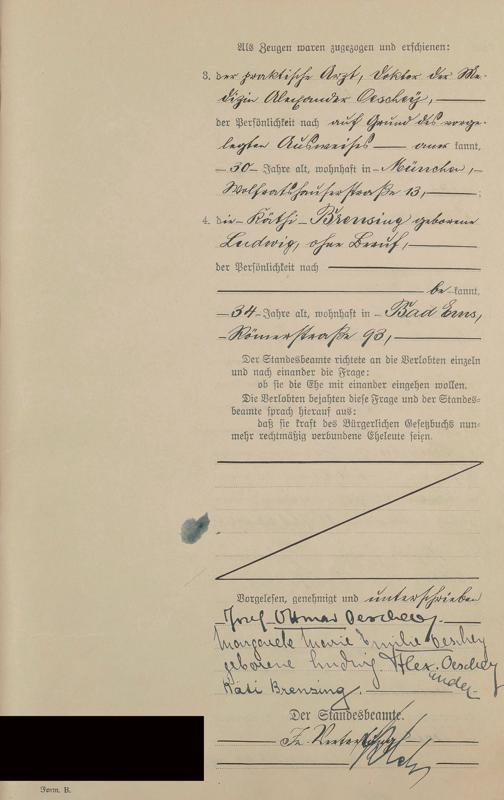 Als Zeugen waren zugezogen und erschienen:
3. der praktische Arzt, Doktor der Me-
dizin Alexander Oeschey,
der Persönlichkeit nach auf Grund des vorge-
legten Ausweises aner kannt,
30 Jahre alt, wohnhaft in München,
Wolfratshauserstraße 13, ;
4. die Käthi Brensing geborene
Ludwig, ohne Beruf,
der Persönlichkeit nach
be kannt,
34 Jahre alt, wohnhaft in Bad Ems,
Römerstraße 93,
Der Standesbeamte richtete an die Verlobten einzeln
und nach einander die Frage:
ob sie die Ehe mit einander eingehen wollen.
Die Verlobten bejahten diese Frage und der Standes-
beamte sprach hierauf aus:
daß sie kraft des Bürgerlichen Gesetzbuchs nun-
mehr rechtmäßig verbundene Eheleute seien.
Vorgelesen, genehmigt und unterschrieben
Josef Ottmar Oeschey.
Margarete Marie Emilie Oeschey
geborene Ludwig Alexander Oeschey
Käti Brensing.
Der Standesbeamte.
In Vertretung
Form. B.